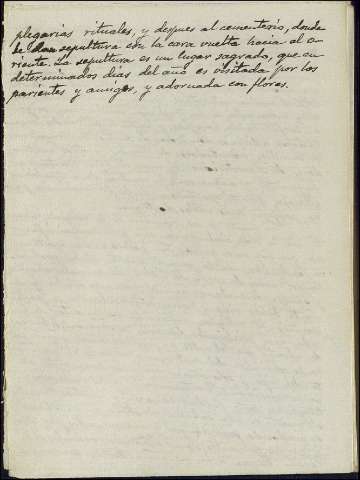 plegarias rituales, y despues al cementerio, donde
le dan sepultura con la cara vuelta hacia al o-
riente. La sepultura es un lugar sagrado, que en
determinados dias del año es visitada por los
parientes y amigos, y adornada con flores.